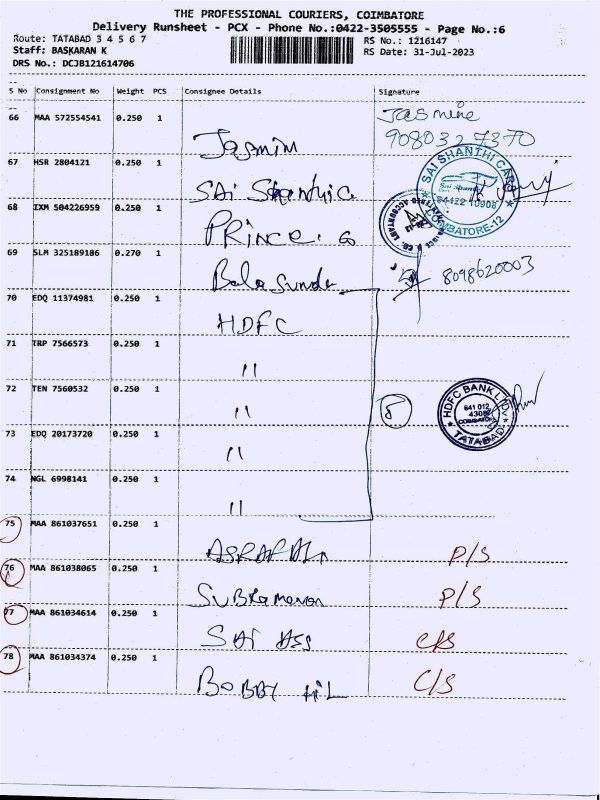 THE PROFESSIONAL COURIERS, COIMBATORE
Delivery Runsheet - PCX - Phone No.:0422-3505555 - Page No.:6
Route: TATABAD 3 4 5 6 7
RS No.: 1216147
Staff: BASKARAN K
RS Date: 31-Jul-2023
DRS No.: DCJB121614706
S No Consignment No Weight PCS Consignee Details Signature
66 MAA 572554541 0.250 1 Jasmin Jasmine
9080327370
67 HSR 2804121 0.250 1 SAi
SAI SHANTHI CAR
COIMBATORE-12
68 IXM 504226959 0.250 1 PRINCE. G
69 SLM 325189186 0.270 1 Bala Sunda 8098620003
70 EDQ 11374981 0.250 1 HDFC
71 TRP 7566573 0.250 1 "
72 TEN 7560532 0.250 1 " 5
HDFC BANK LTD
641 012
COIMBATORE
TATABAD
73 EDQ 20173720 0.250 1 "
74 NGL 6998141 0.250 1 "
75 MAA 861037651 0.250 1 P/S
76 MAA 861038065 0.250 1 SUBRamanan P/S
77 MAA 861034614 0.250 1 SAi ASS C/S
78 MAA 861034374 0.250 1 BOBBY HiL C/S